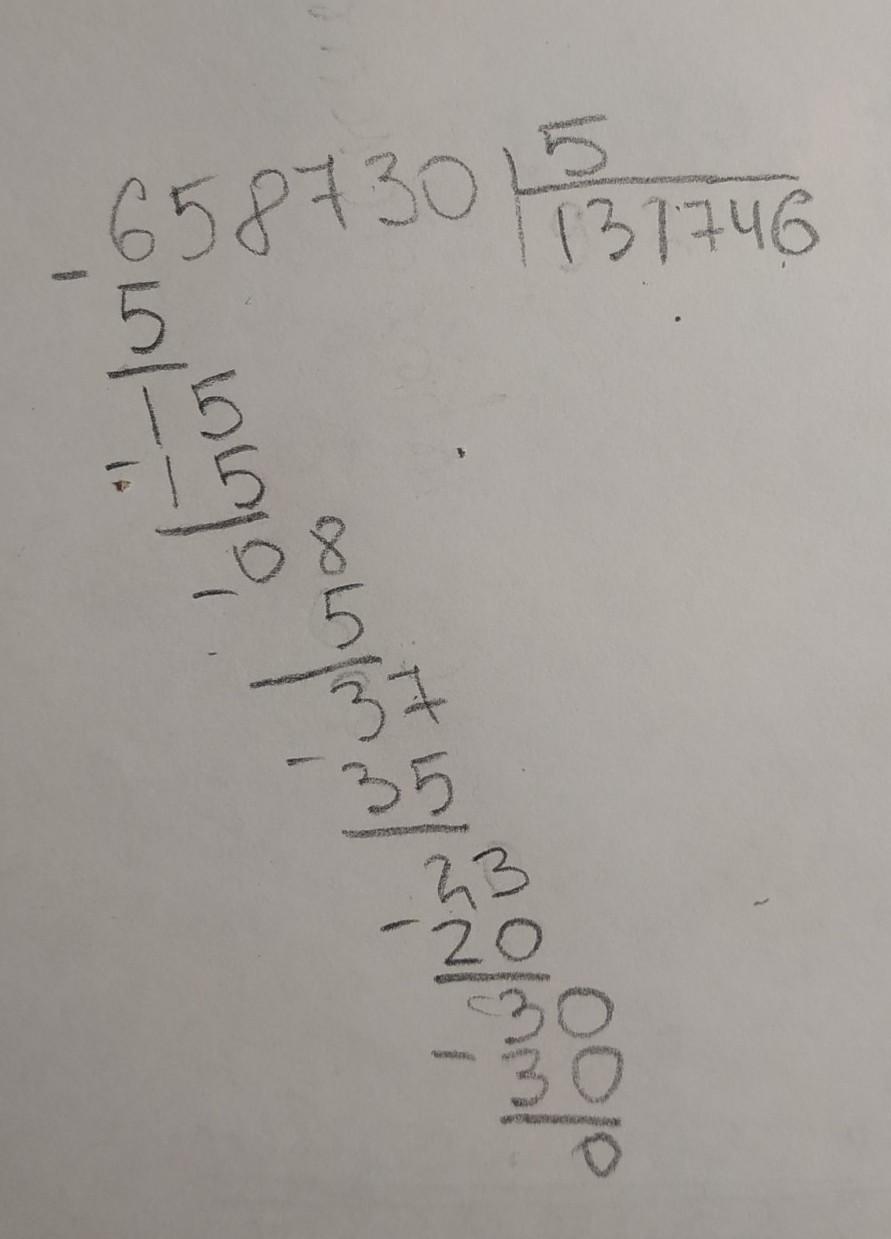 658730 5
131746
- 5
15
- 15
08
- 5
37
- 35
23
- 20
30
- 30
0